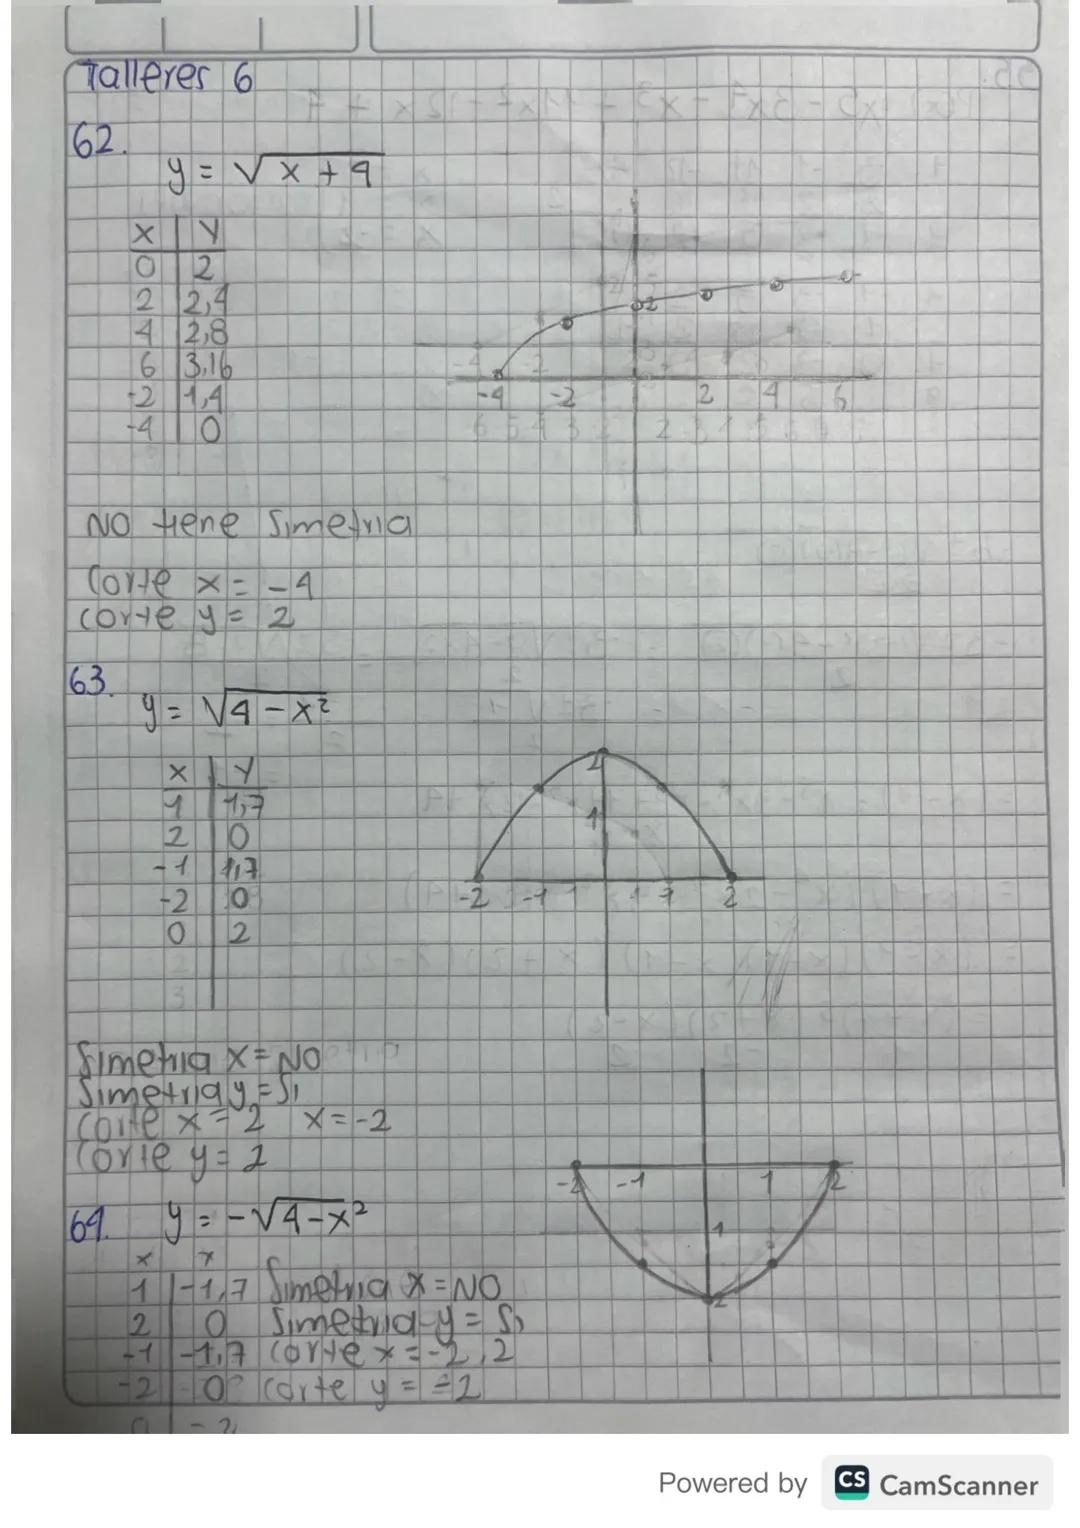 Talleres 6
62.
y = √x + 4
x | y
0 | 2
2 | 2,4
4 | 2,8
6 | 3,16
-2 | 1,4
-4 | 0
2
-4 -2 2 4 6
No tiene Simetria
Corte x = -4
Corte y = 2
63.
y = √4 - x²
x | y
1 | 1,7
2 | 0
-1 | 1,7
-2 | 0
0 | 2
2
1
-2 -1 1 2
Simetria x = NO
Simetria y = Si
Corte x = 2 x = -2
Corte y = 2
64. y = -√4-x²
-2 -1 1 2
1
2
x | y
1 | -1,7 Simetria x = NO
2 | 0 Simetria y = Si
-1 | -1,7 Corte x = -2, 2
-2 | 0 Corte y = -2
0 | -2
Powered by CS CamScanner